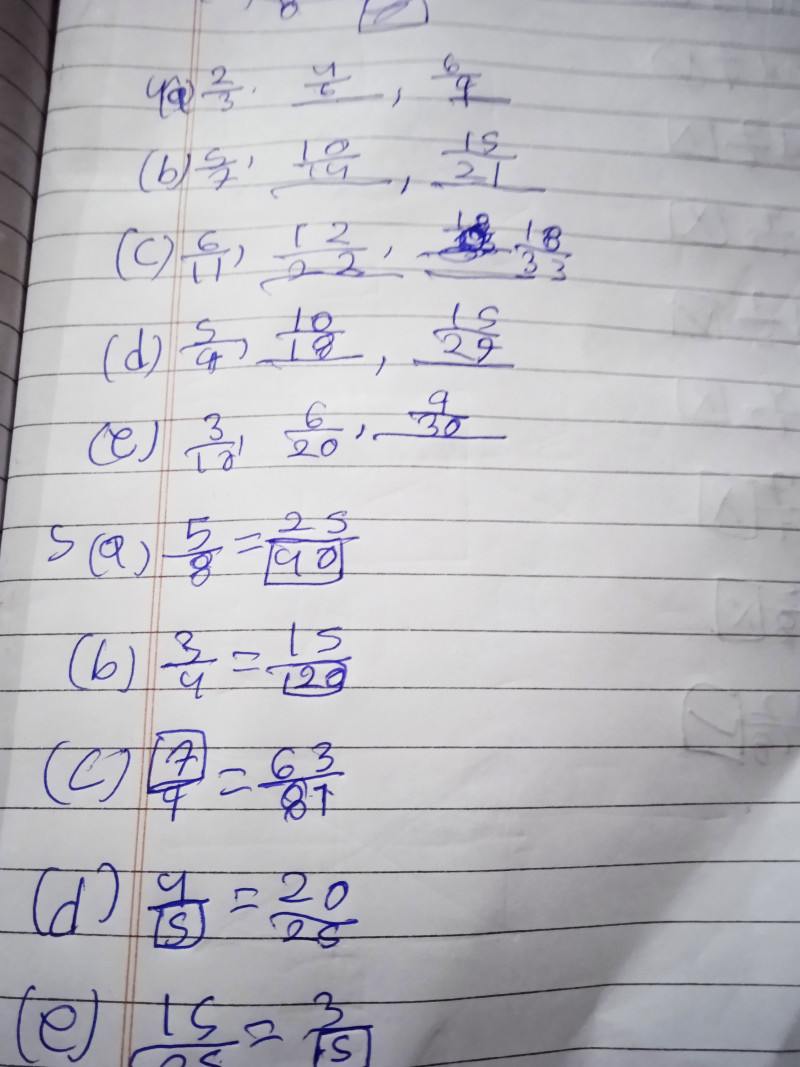 4(a) 2/3, 4/6, 6/9
(b) 5/7, 10/14, 15/21
(c) 6/11, 12/22, 18/33
(d) 5/9, 10/18, 15/27
(e) 3/10, 6/20, 9/30
5(a) 5/8 = 25/40
(b) 3/4 = 15/20
(c) 7/9 = 63/81
(d) 4/5 = 20/25
(e) 15/25 = 3/5